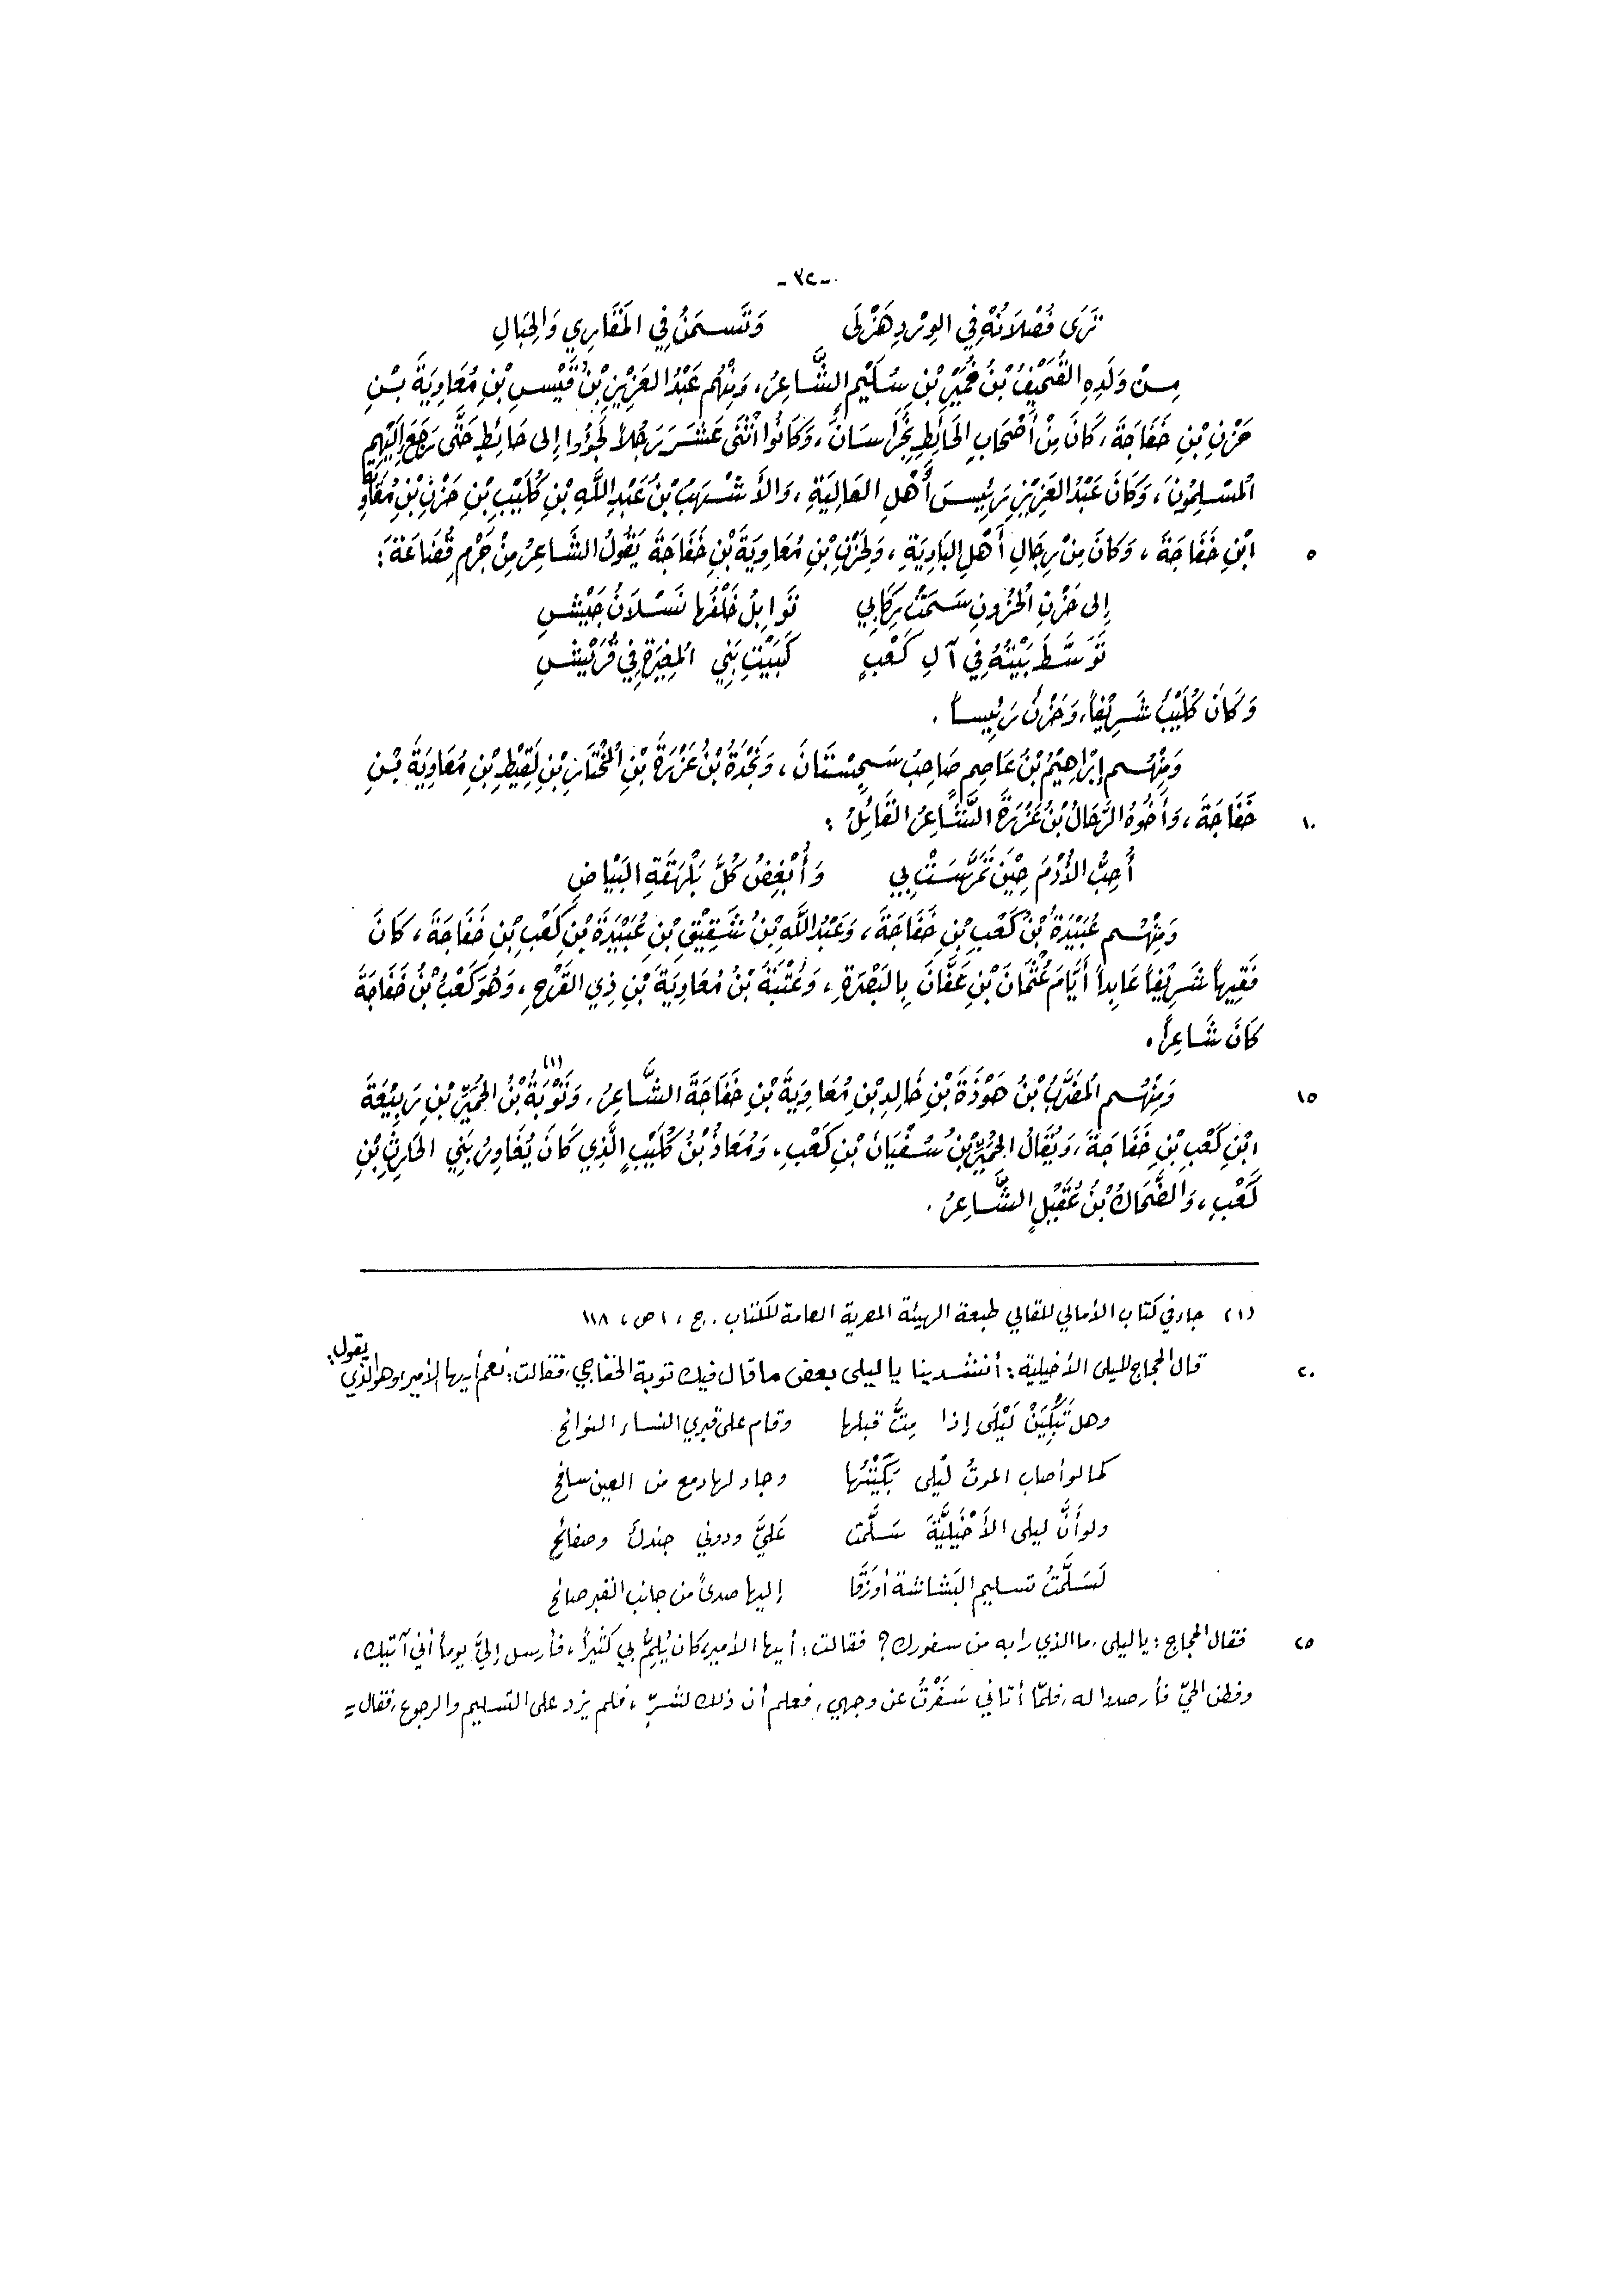 -٣٢-
تَرَى فُصْلَانَهُ فِي الوِرْدِ هَزْلَى وَتَسْمَنُ فِي المَقَارِي وَالحِبَالِ
مِنْ وَلَدِهِ القُحَيْفُ بْنُ خُمَيْرِ بْنِ سُلَيْمٍ الشَّاعِرُ، وَمِنْهُم عَبْدُ العَزِيزِ بْنُ قَيْسِ بْنِ مُعَاوِيَةَ بْنِ
حَزْنِ بْنِ خَفَاجَةَ، كَانَ مِنْ أَصْحَابِ الحَائِطِ بِخُرَاسَانَ، وَكَانُوا اثْنَى عَشَرَ رَجُلاً لَجَؤُوا إِلى حَائِطٍ حَتَّى رَجَعَ إِلَيْهِم
المُسْلِمُونَ، وَكَانَ عَبْدُ العَزِيزِ رَئِيسَ أَهْلِ العَالِيَةِ، وَالأَشْهَبُ بْنُ عَبْدِ اللَّهِ بْنِ كُلَيْبِ بْنِ حَزْنِ بْنِ مُعَاوِيَةَ
٥ ابْنِ خَفَاجَةَ، وَكَانَ مِنْ رِجَالِ أَهْلِ البَادِيَةِ، وَلِحَزْنِ بْنِ مُعَاوِيَةَ بْنِ خَفَاجَةَ يَقُولُ الشَّاعِرُ مِنْ جَرْمِ قُضَاعَةَ:
إِلى حَزْنِ الحُزُونِ سَمَتْ رِكَابِي نَوَابِلُ خَلْفَها نَسْلَانُ جَيْشِ
تَوَسَّطَ بَيْتُهُ فِي آلِ كَعْبٍ كَبَيْتِ بَنِي المُغِيرَةِ فِي قُرَيْشِ
وَكَانَ كُلَيْبُ شَرِيْفاً، وَحَزْنُ رَئِيساً.
وَمِنْهُم إِبْرَاهِيْمُ بْنُ عَاصِمٍ صَاحِبُ سَجِسْتَانَ، وَنَجْدَةُ بْنُ عَزْرَةَ بْنِ المُخْتَارِ بْنِ لَقِيْطِ بْنِ مُعَاوِيَةَ بْنِ
١٠ خَفَاجَةَ، وَأَخُوهُ الرَّحَالُ بْنُ عَزْرَةَ الشَّاعِرُ القَائِلُ:
أُحِبُّ الأُدْمَ حِيْنَ تَمَرَّسَتْ بِي وَأُبْغِضُ كُلَّ بَلْهَقَةِ البَيَاضِ
وَمِنْهُم عُبَيْدَةُ بْنُ كَعْبِ بْنِ خَفَاجَةَ، وَعَبْدُ اللَّهِ بْنُ شَقِيْقِ بْنِ عُبَيْدَةَ بْنِ كَعْبِ بْنِ خَفَاجَةَ، كَانَ
فَقِيهاً شَرِيْفاً عَابِداً أَيَّامَ عُثْمَانَ بْنِ عَفَّانَ بِالبَصْرَةِ، وَعُتْبَةُ بْنُ مُعَاوِيَةَ بْنِ ذِي القَرْحِ، وَهُوَ كَعْبُ بْنُ خَفَاجَةَ
كَانَ شَاعِراً.
١٥ وَمِنْهُم المُضَرَّبُ بْنُ هَوْذَةَ بْنِ خَالِدِ بْنِ مُعَاوِيَةَ بْنِ خَفَاجَةَ الشَّاعِرُ، وَتَوْبَةُ(١) بْنُ الحُمَيِّرِ بْنِ رَبِيْعَةَ
ابْنِ كَعْبِ بْنِ خَفَاجَةَ، وَيُقَالُ الحُمَيِّرُ بْنُ سُفْيَانَ بْنِ كَعْبٍ، وَمُعَاذُ بْنُ كُلَيْبٍ الَّذِي كَانَ يُغَاوِرُ بَنِي الحَارِثِ بْنِ
كَعْبٍ، وَالضَّحَاكُ بْنُ عُقَيْلٍ الشَّاعِرُ.
(١) جاء في كتاب الأمالي للقالي طبعة الهيئة المصرية العامة للكتاب. ج، ١ ص، ١١٨
٢٠ قال الحجاج لليلى الأخيلية: أنشدينا يا ليلى بعض ما قال فيك توبة الخفاجي، فقالت: نعم أيها الأمير، وهو الذي يقول:
وهل تَبْكِيَنْ لَيْلَى إذا مِتُّ قبلها وقام على قبري النساء النوائح
كما لو أصاب الموتُ لَيْلى بَكَيْتُها وجاد لها دمع من العين سافح
ولو أَنَّ ليلى الأَخْيَلِيَّةَ سَلَّمت عَليَّ ودوني جندلٌ وصفائح
لَسَلَّمْتُ تسليم البَشاشة أوزَقَا إليها صدىً من جانب القبر صائح
٢٥ فقال الحجاج: يا ليلى، ما الذي رابه من سفورك؟ فقالت: أيها الأمير، كان يُلِمُّ بي كثيراً، فأرسل إليَّ يوماً أني آتيك،
وفطن الحيّ فأرصدوا له، فلمّا أتاني سَفَرْتُ عن وجهي، فعلم أن ذلك لشرٍّ، فلم يزد على التسليم والرجوع، فقال =